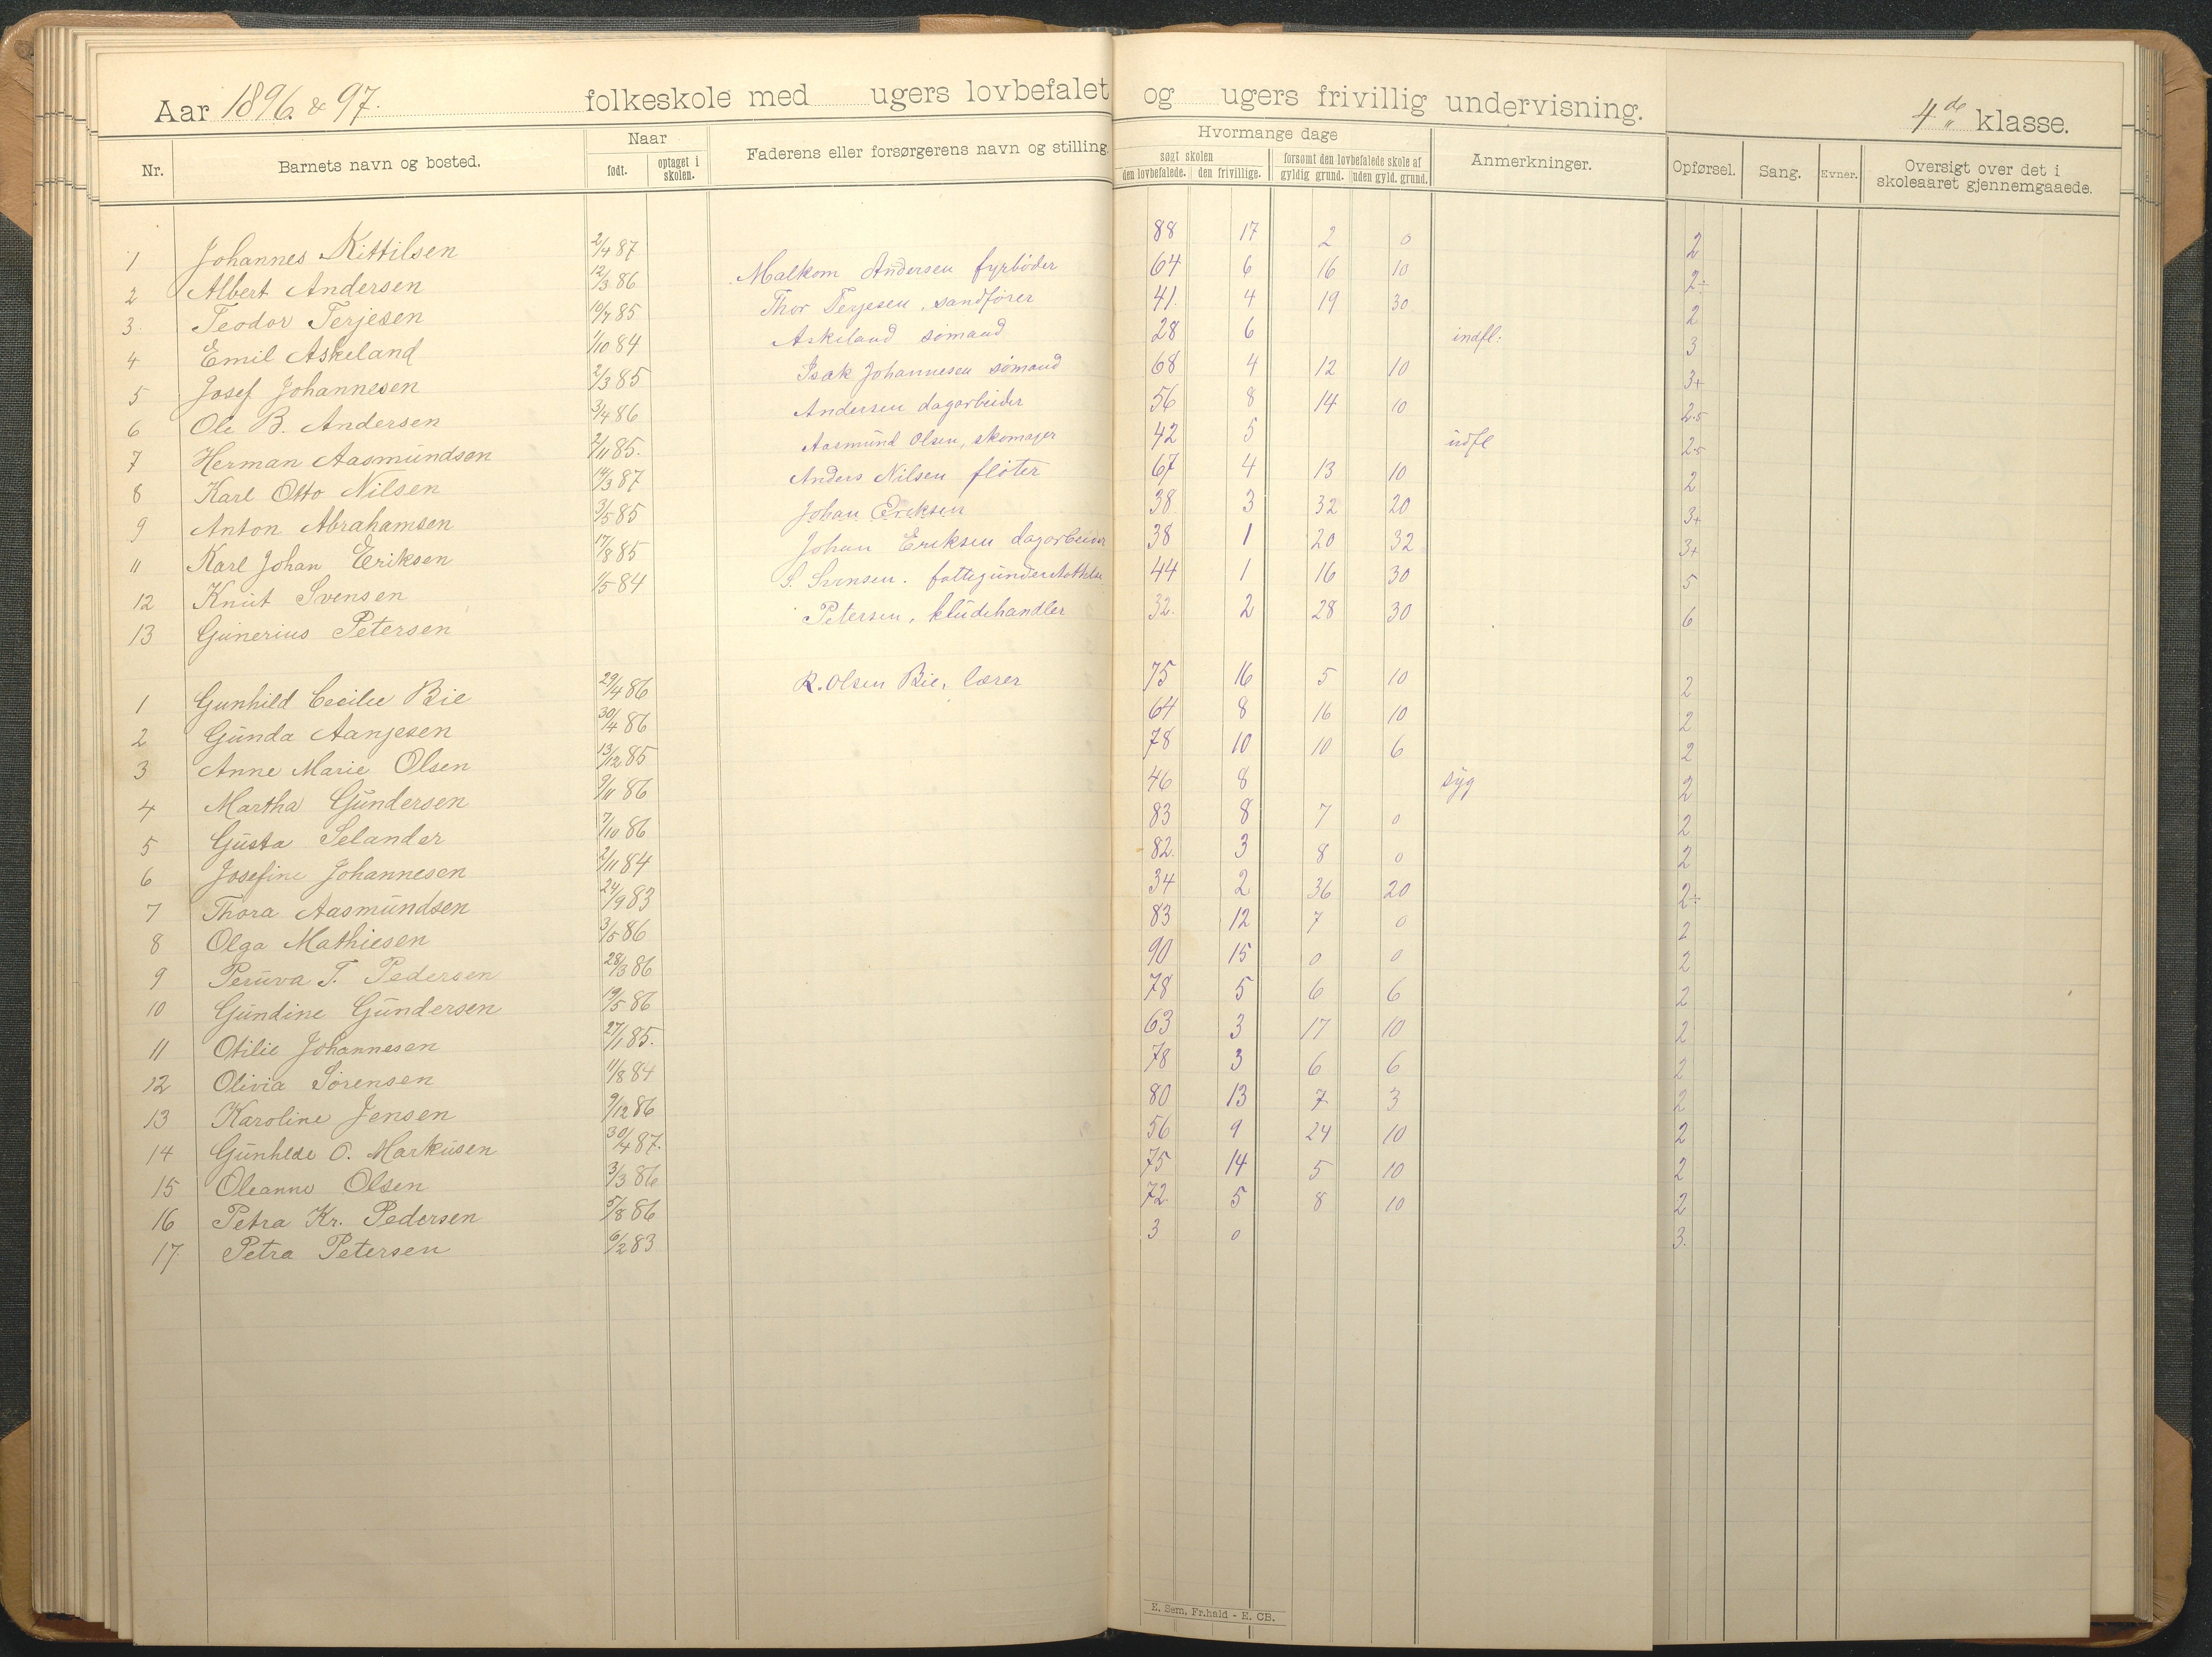 Aar 1896 & 97. folkeskole med ugers lovbefalet og ugers frivillig undervisning. 4de klasse.
Nr. Barnets navn og bosted. Naar født. optaget i skolen. Faderens eller forsørgerens navn og stilling. Hvormange dage søgt skolen den lovbefalede. den frivillige. forsømt den lovbefalede skole af gyldig grund. uden gyld. grund. Anmerkninger. Opførsel. Sang. Evner. Oversigt over det i skoleaaret gjennemgaaede.
1 Johannes Kittilsen 2/4 87 88 17 2 0 2
2 Albert Andersen 12/3 86 Malkom Andersen fyrbøder 64 6 16 10 2÷
3 Teodor Terjesen 10/7 85 Thor Terjesen, sandfører 41. 4 19 30 2
4 Emil Askeland 1/10 84 Askeland sømand 28 6 indfl: 3
5 Josef Johannesen 2/3 85 Isak Johannesen sømand 68 4 12 10 3+
6 Ole B. Andersen 3/4 86 Andersen dagarbeider 56 8 14 10 2.5
7 Herman Aasmundsen 2/11 85. Aasmund Olsen, skomager 42 5 udfl 2.5
8 Karl Otto Nilsen 14/3 87 Anders Nilsen fløter 67 4 13 10 2
9 Anton Abrahamsen 3/5 85 Johan Eriksen 38 3 32 20 3+
11 Karl Johan Eriksen 17/8 85 Johan Eriksen dagarbeider 38 1 20 32 3+
12 Knut Svensen 1/5 84 S. Svensen. 44 1 16 30 5
13 Gunerius Petersen Petersen, kludehandler 32. 2 28 30 6
1 Gunhild Cecilie Bie 29/4 86 R. Olsen Bie, lærer 75 16 5 10 2
2 Gunda Aanjesen 30/4 86 64 8 16 10 2
3 Anne Marie Olsen 13/12 85 78 10 10 6 2
4 Martha Gundersen 9/11 86 46 8 syg 2
5 Gusta Selander 7/10 86 83 8 7 0 2
6 Josefine Johannesen 2/11 84 82. 3 8 0 2
7 Thora Aasmundsen 24/9 83 34 2 36 20 2÷
8 Olga Mathiesen 3/5 86 83 12 7 0 2
9 Peruva T. Pedersen 28/3 86 90 15 0 0 2
10 Gundine Gundersen 19/5 86 78 5 6 6 2
11 Otilie Johannesen 27/1 85. 63 3 17 10 2
12 Olivia Sørensen 11/8 84 78 3 6 6 2
13 Karoline Jensen 9/12 86 80 13 7 3 2
14 Gunhilde O. Markusen 30/4 87. 56 9 24 10 2
15 Oleanne Olsen 3/3 86 75 14 5 10 2
16 Petra Kr. Pedersen 5/8 86 72 5 8 10 2
17. Petra Petersen 6/2 83 3 0 3.
E. Sem, Fr.hald - E. CB.